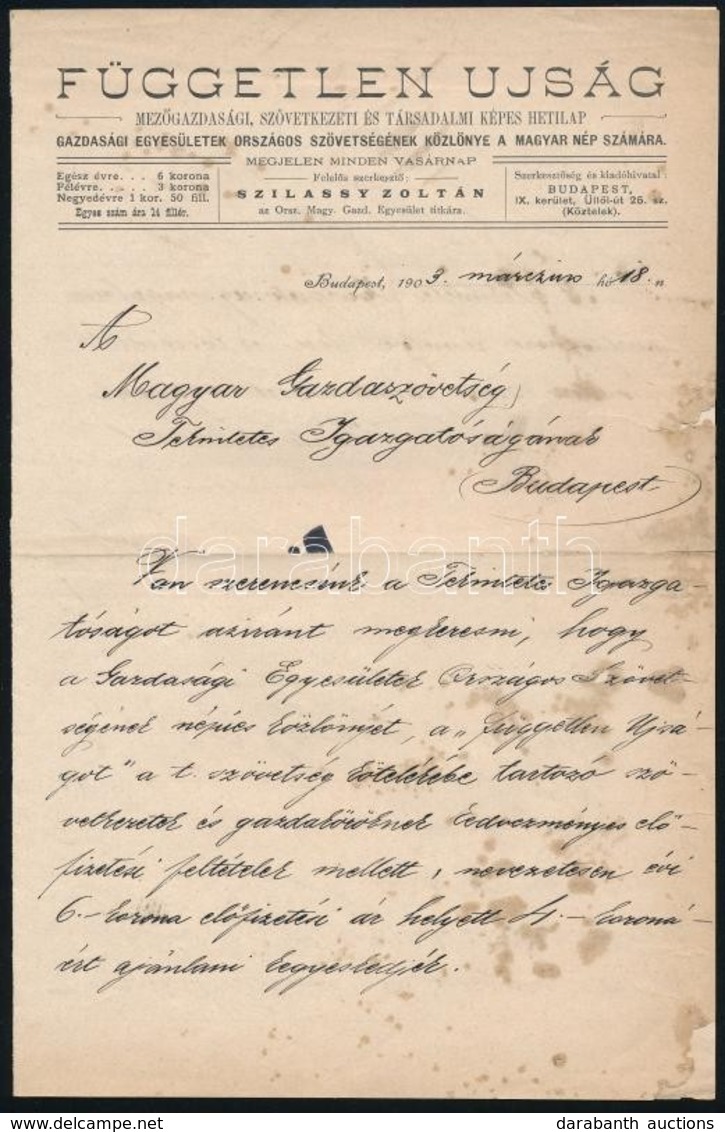 FÜGGETLEN UJSÁG
MEZŐGAZDASÁGI, SZÖVETKEZETI ÉS TÁRSADALMI KÉPES HETILAP
GAZDASÁGI EGYESÜLETEK ORSZÁGOS SZÖVETSÉGÉNEK KÖZLÖNYE A MAGYAR NÉP SZÁMÁRA.
MEGJELEN MINDEN VASÁRNAP
Egész évre. . . 6 korona
Félévre. . . . . 3 korona
Negyedévre 1 kor. 50 fill.
Egyes szám ára 14 fillér.
Felelős szerkesztő:
SZILASSY ZOLTÁN
az Orsz. Magy. Gazd. Egyesület titkára.
Szerkesztőség és kiadóhivatal:
BUDAPEST,
IX. kerület, Üllői-út 25. sz.
(Köztelek).
Budapest, 1903. márczius hó 18.-n
A
Magyar Gazdaszövetség
Tekintetes Igazgatóságának
Budapest
darabanth
Van szerencsénk a Tekintetes Igazga-
tóságot aziránt megkeresni, hogy
a Gazdasági Egyesületek Országos Szövet-
ségének népies közlönyét, a „Független Ujsá-
got" a t. szövetség kötelékébe tartozó szö-
vetkezetek és gazdaköröknek kedvezményes elő-
fizetési feltételek mellett, nevezetesen évi
6.- korona előfizetési ár helyett 4.- koroná-
ért ajánlani kegyeskedjék.
darabanth auctions